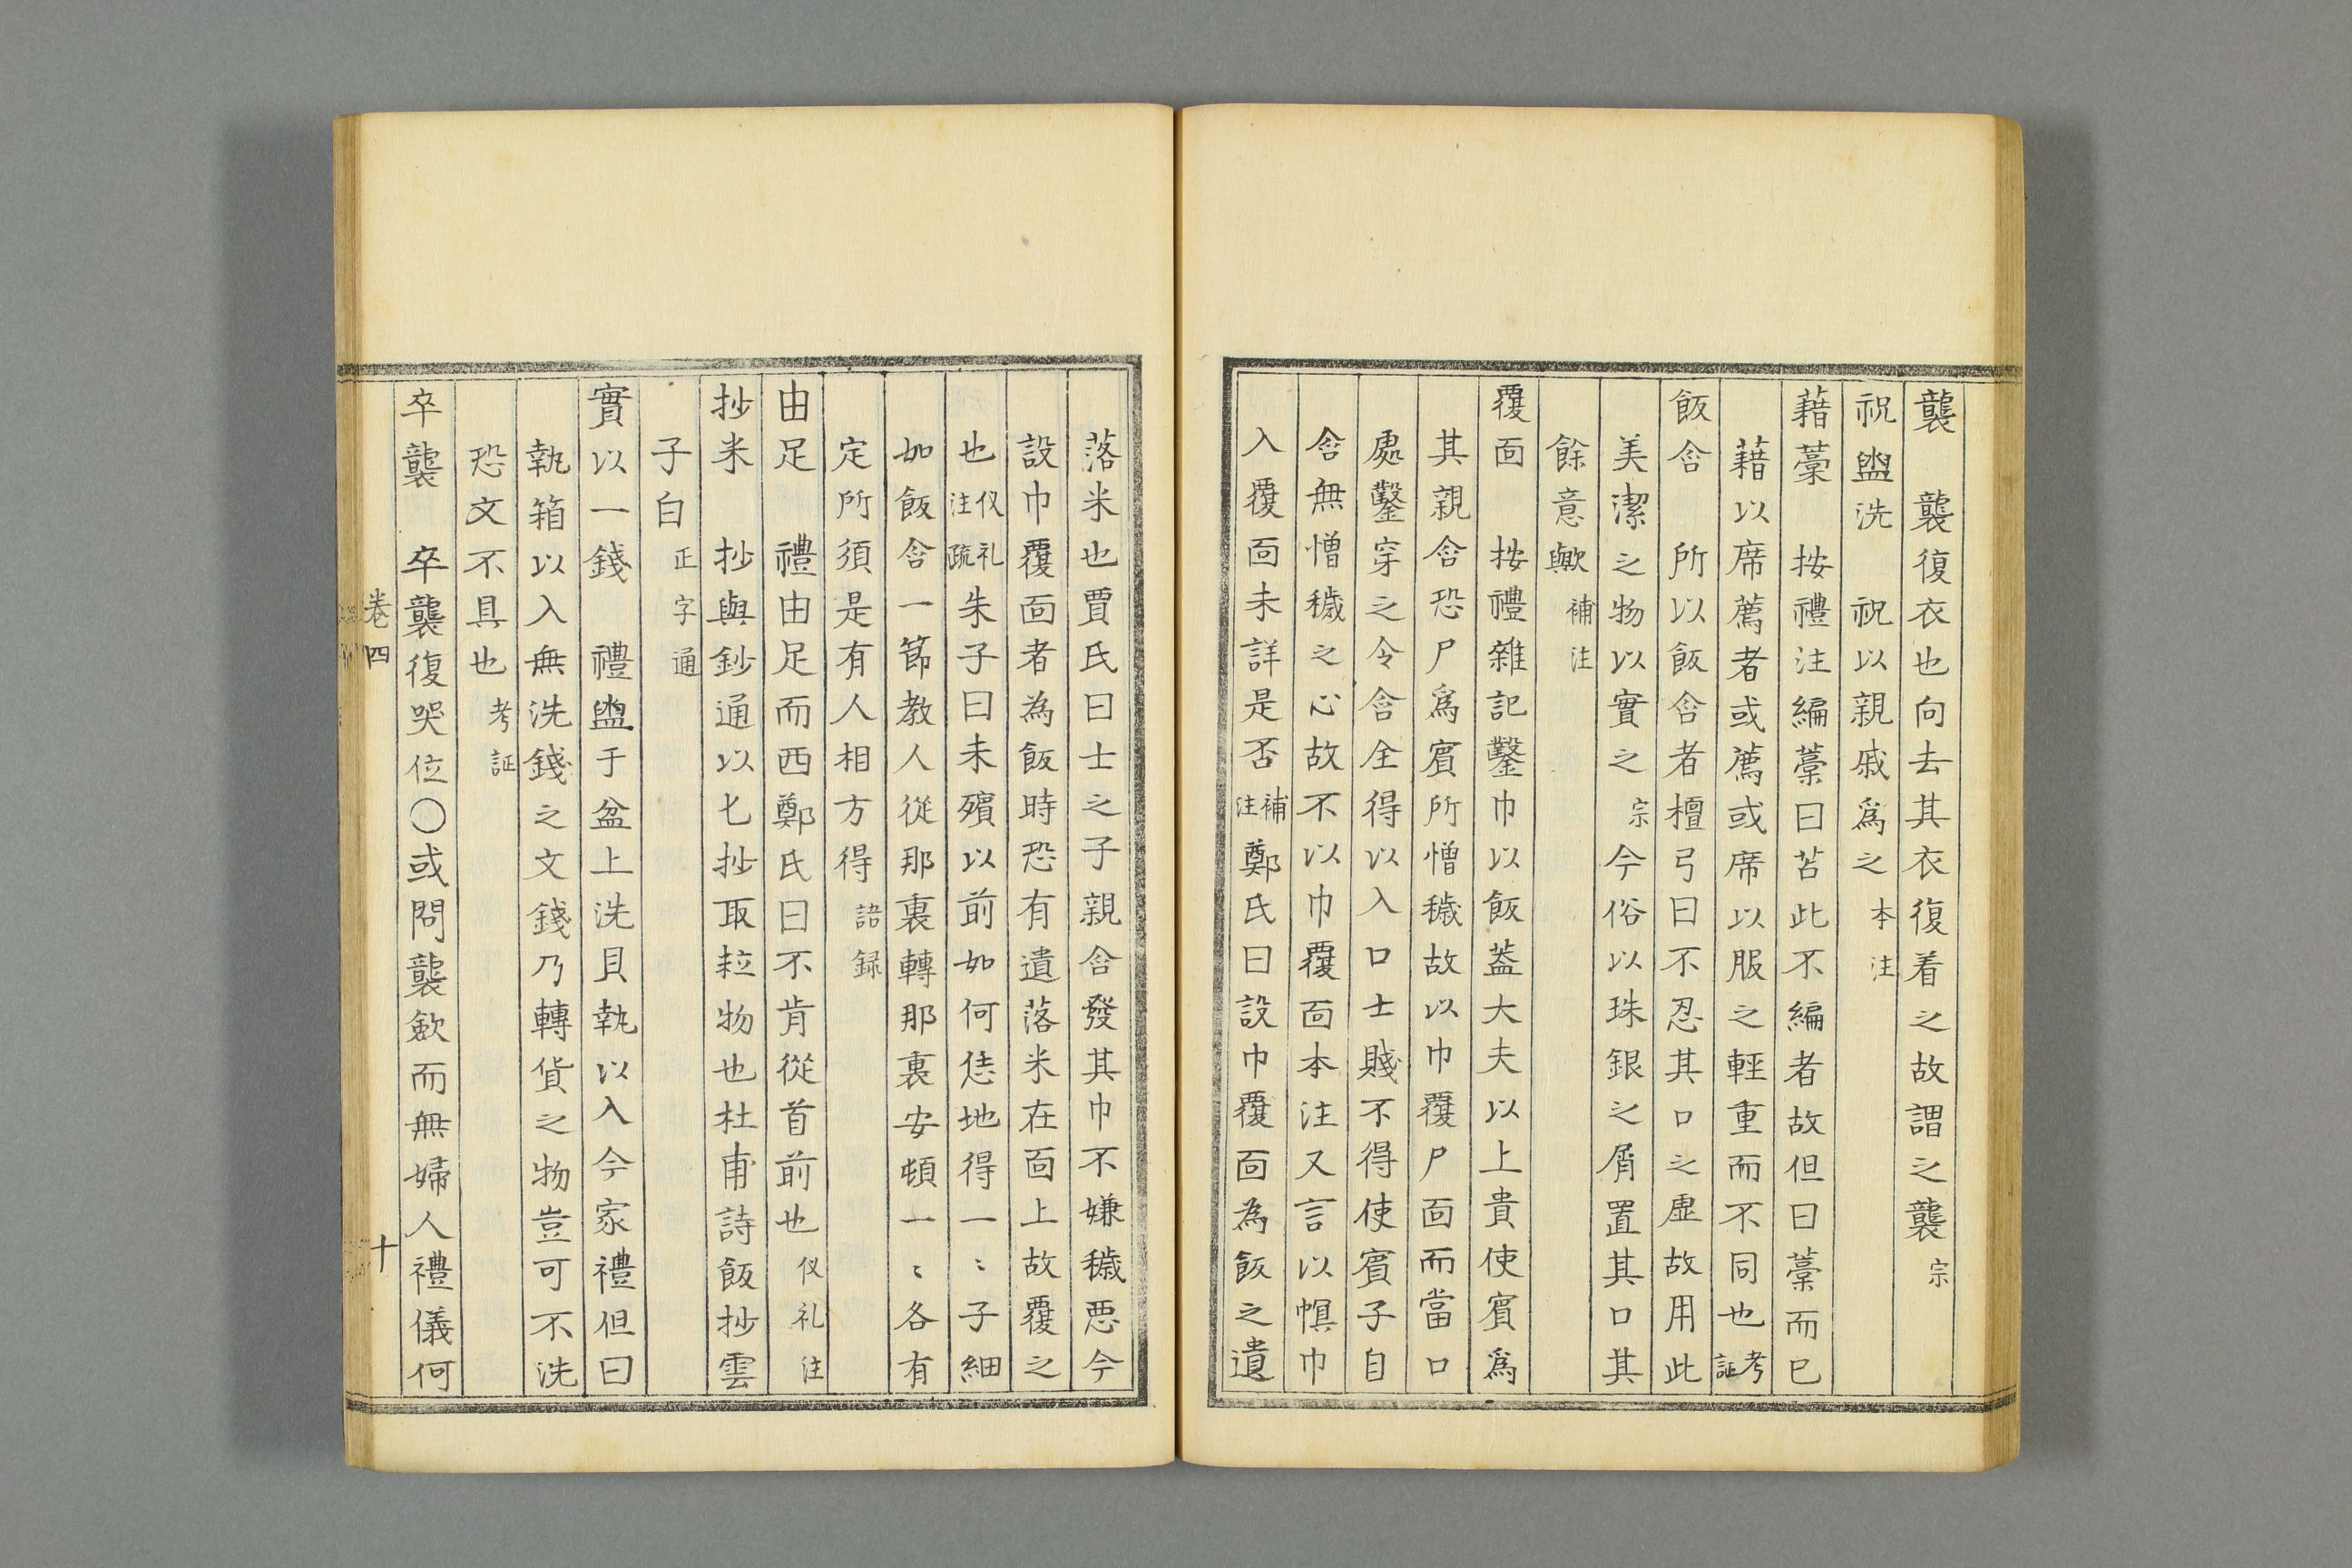 襲　襲復衣也向去其衣復着之故謂之襲宗
祝盥洗　祝以親戚爲之本注
藉藁　按禮注編藁曰苫此不編者故但曰藁而已
藉以席薦者或薦或席以服之輕重而不同也考証
飯含　所以飯含者檀弓曰不忍其口之虛故用此
美潔之物以實之宗今俗以珠銀之屑置其口其
餘意歟補注
覆面　按禮雜記鑿巾以飯蓋大夫以上貴使賓爲
其親含恐尸爲賓所憎穢故以巾覆尸面而當口
處鑿穿之令含全得以入口士賤不得使賓子自
含無憎穢之心故不以巾覆面本注又言以幎巾
入覆面未詳是否補注鄭氏曰設巾覆面為飯之遺
落米也賈氏曰士之子親含發其巾不嫌穢惡今
設巾覆面者為飯時恐有遺落米在面上故覆之
也仪礼注疏朱子曰未殯以前如何恁地得一〻子細
如飯含一節教人從那裏轉那裏安頓一〻各有
定所須是有人相方得語録
由足　禮由足而西鄭氏曰不肯從首前也仪礼注
抄米　抄與鈔通以匕抄取粒物也杜甫詩飯抄雲
子白正字通
實以一錢　禮盥于盆上洗貝執以入今家禮但曰
執箱以入無洗錢之文錢乃轉貨之物豈可不洗
恐文不具也考証
卒襲　卒襲復哭位〇或問襲歛而無婦人禮儀何
卷四　十